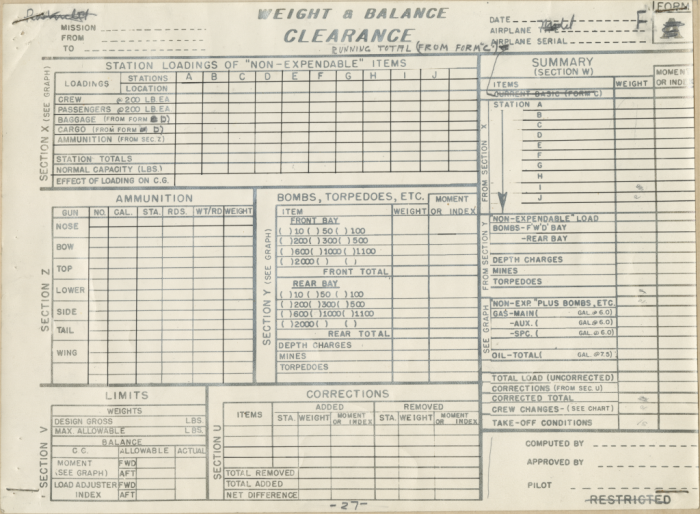 WEIGHT & BALANCE
CLEARANCE
RUNNING TOTAL (FROM FORM "C")
Restricted
MISSION
FROM
TO
DATE
AIRPLANE
AIRPLANE SERIAL
FORM
F
STATION LOADINGS OF "NON-EXPENDABLE" ITEMS
SECTION X (SEE GRAPH)
LOADINGS STATIONS A B C D E F G H I J
LOCATION
CREW @ 200 LB.EA
PASSENGERS @ 200 LB.EA
BAGGAGE (FROM FORM D)
CARGO (FROM FORM D)
AMMUNITION (FROM SEC. Z)
STATION TOTALS
NORMAL CAPACITY (LBS.)
EFFECT OF LOADING ON C.G.
SUMMARY
(SECTION W)
ITEMS WEIGHT MOMENT OR INDEX
CURRENT BASIC (FORM "C")
FROM SECTION X
STATION A
B
C
D
E
F
G
H
I
J
"NON-EXPENDABLE" LOAD
FROM SECTION Y
BOMBS-F'W'D' BAY
-REAR BAY
DEPTH CHARGES
MINES
TORPEDOES
"NON-EXP." PLUS BOMBS, ETC.
SEE GRAPH
GAS-MAIN( GAL.@6.0)
-AUX.( GAL.@6.0)
-SPC.( GAL.@6.0)
OIL-TOTAL( GAL.@7.5)
TOTAL LOAD (UNCORRECTED)
CORRECTIONS (FROM SEC. U)
CORRECTED TOTAL
CREW CHANGES-(SEE CHART)
TAKE-OFF CONDITIONS
SECTION Z
AMMUNITION
GUN NO. CAL. STA. RDS. WT/RD WEIGHT
NOSE
BOW
TOP
LOWER
SIDE
TAIL
WING
SECTION Y (SEE GRAPH)
BOMBS, TORPEDOES, ETC. MOMENT
ITEM WEIGHT OR INDEX
FRONT BAY
( )10 ( )50 ( )100
( )200( )300( )500
( )600( )1000( )1100
( )2000( ) ( )
FRONT TOTAL
REAR BAY
( )10 ( )50 ( )100
( )200( )300( )500
( )600( )1000( )1100
( )2000( ) ( )
REAR TOTAL
DEPTH CHARGES
MINES
TORPEDOES
SECTION V
LIMITS
WEIGHTS
DESIGN GROSS LBS.
MAX. ALLOWABLE LBS.
BALANCE
C.G. ALLOWABLE ACTUAL
MOMENT FWD
(SEE GRAPH) AFT
LOAD ADJUSTER FWD
INDEX AFT
SECTION U
CORRECTIONS
ITEMS ADDED REMOVED
STA. WEIGHT MOMENT OR INDEX STA. WEIGHT MOMENT OR INDEX
TOTAL REMOVED
TOTAL ADDED
NET DIFFERENCE
COMPUTED BY
APPROVED BY
PILOT
RESTRICTED
-27-